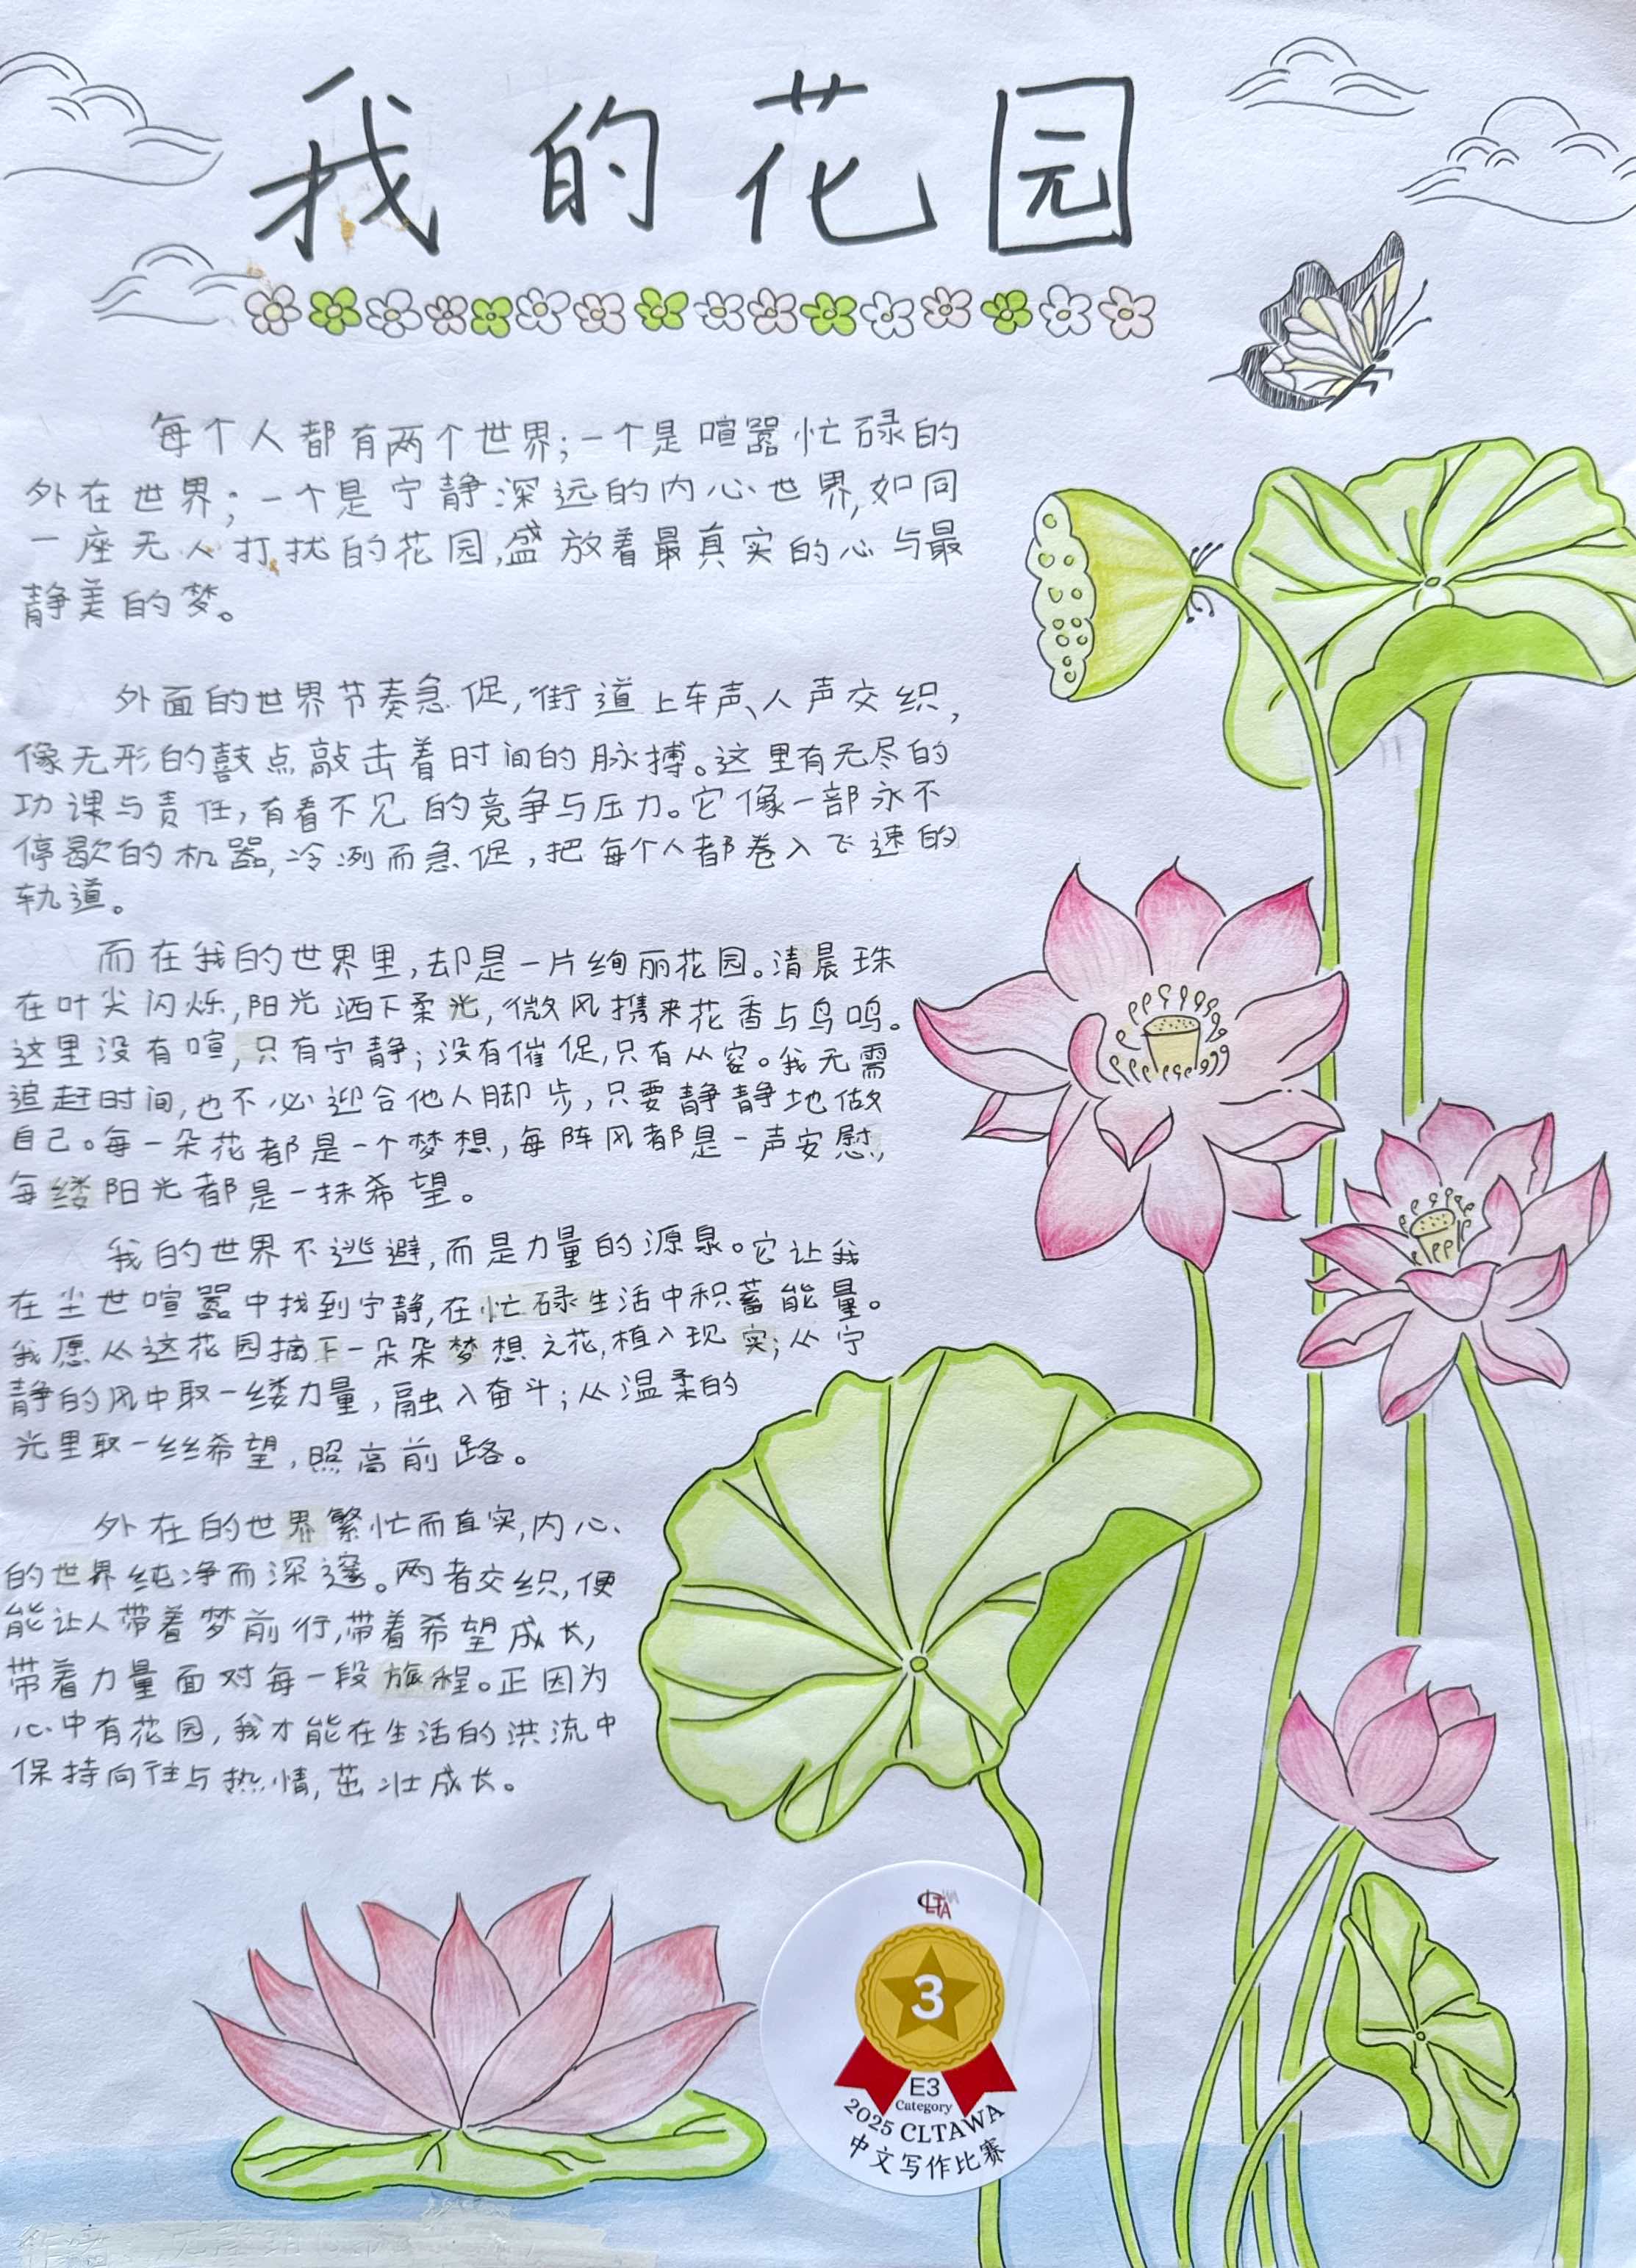 我的花园
每个人都有两个世界;一个是喧嚣忙碌的
外在世界;一个是宁静深远的内心世界,如同
一座无人打扰的花园,盛放着最真实的心与最
静美的梦。
外面的世界节奏急促,街道上车声、人声交织,
像无形的鼓点敲击着时间的脉搏。这里有无尽的
功课与责任,有看不见的竞争与压力。它像一部永不
停歇的机器,冷冽而急促,把每个人都卷入飞速的
轨道。
而在我的世界里,却是一片绚丽花园。清晨珠
在叶尖闪烁,阳光洒下柔光,微风携来花香与鸟鸣。
这里没有喧,只有宁静;没有催促,只有从容。我无需
追赶时间,也不必迎合他人脚步,只要静静地做
自己。每一朵花都是一个梦想,每阵风都是一声安慰,
每缕阳光都是一抹希望。
我的世界不逃避,而是力量的源泉。它让我
在尘世喧嚣中找到宁静,在忙碌生活中积蓄能量。
我愿从这花园摘下一朵朵梦想之花,植入现实;从宁
静的风中取一缕力量,融入奋斗;从温柔的
光里取一丝希望,照高前路。
外在的世界繁忙而真实,内心
的世界纯净而深邃。两者交织,便
能让人带着梦前行,带着希望成长,
带着力量面对每一段旅程。正因为
心中有花园,我才能在生活的洪流中
保持向往与热情,茁壮成长。
CLTAWA
3
E3
Category
2025 CLTAWA
中文写作比赛